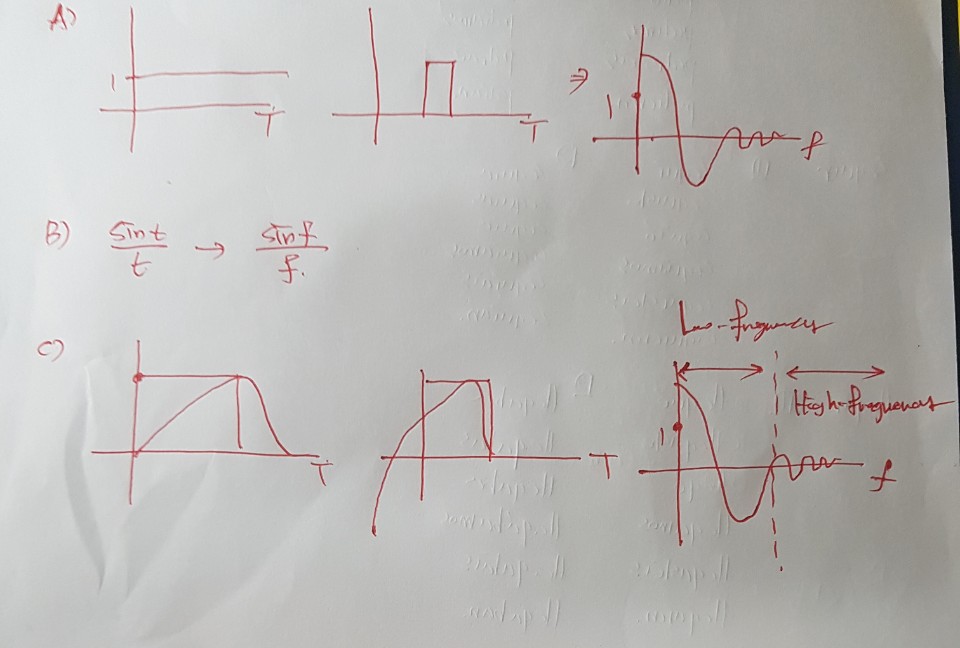 A)
1 T T ⇒ 1 f
B) sin t / t → sin f / f.
Low-frequency
C)
High-frequency
T T 1 f